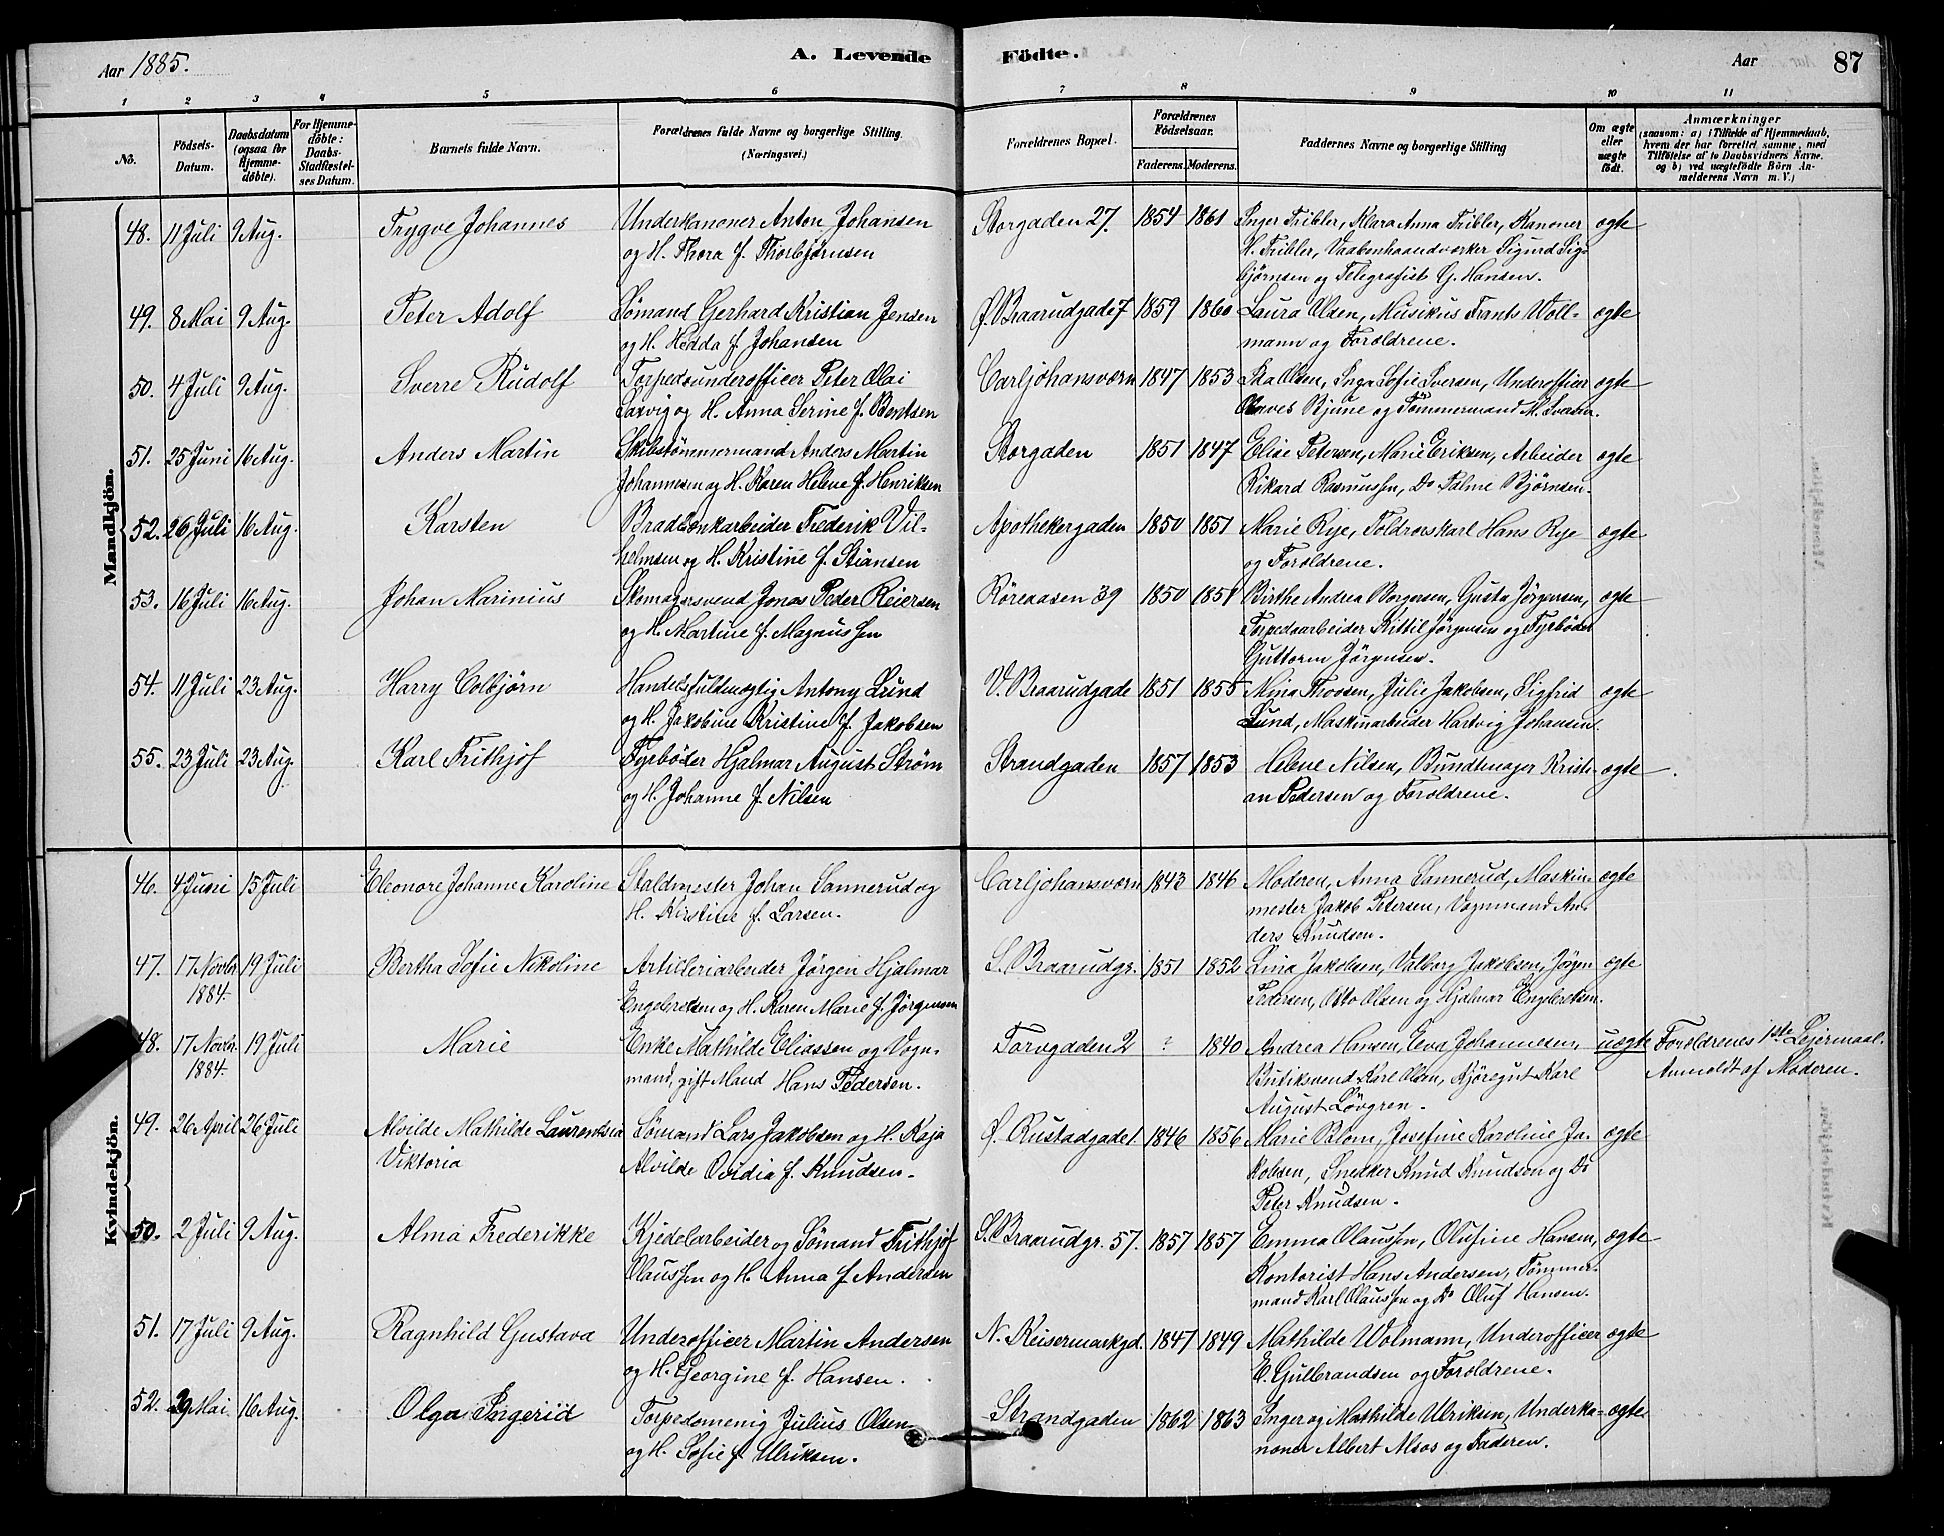 Aar 1885.
A. Levende Födte.
Aar
87
1 2 3 4 5 6 7 8 9 10 11
No.
Födsels-Datum.
Daabsdatum (ogsaa for Hjemmedöbte).
For Hjemmedöbte: Daabs-Stadfæstelses Datum.
Barnets fulde Navn.
Forældrenes fulde Navne og borgerlige Stilling. (Næringsvei.)
Forældrenes Bopæl.
Forældrenes Födselsaar.
Faderens. Moderens.
Faddernes Navne og borgerlige Stilling
Om ægte eller uægte födt.
Anmærkninger
(saasom: a) i Tilfælde af Hjemmedaab, hvem der har forrettet samme, med Tilföielse af to Daabsvidners Navne, og b) ved uægtefödte Börn Anmelderens Navn m. V.)
Mandkjön.
48. 11 Juli 9 Aug. Trygve Johannes Underkanoner Anton Johansen Storgaden 27. 1854 1861 Inger Tribler, Klara Anna Tribler, Kanoner ægte
og H. Thora f. Thorbjørnsen H. Tribler, Vaabenhaandværker Sigurd Sig-
bjørnsen og Telegrafist G. Hansen.
49. 8 Mai 9 Aug. Peter Adolf Sømand Gerhard Kristian Jensen Ø. Braarudgade 7 1859 1860 Laura Olsen, Musikus Frants Woll- ægte
og H. Hedda f. Johansen mann og Forældrene.
50. 4 Juli 9 Aug. Sverre Rudolf Torpedounderofficer Peter Olai Carljohansværn 1847 1853 Lea Olsen, Inga Sofie Iversen, Underofficer ægte
Saxvig og H. Anna Serine f. Bentsen Olaves Bjune og Tømmermand M. Iversen.
51. 25 Juni 16 Aug. Anders Martin Skibstømmermand Anders Martin Storgaden 1851 1847 Elise Petersen, Marie Eriksen, Arbeider ægte
Johannesen og H. Karen Helene f. Henriksen Rikard Rasmussen, Do Palme Bjørnsen.
52. 26 Juli 16 Aug. Karsten Bradbænkarbeider Frederik Vil- Apothekergaden 1850 1851 Marie Rye, Toldrorskarl Hans Rye ægte
helmsen og H. Kristine f. Stiansen og Forældrene.
53. 16 Juli 16 Aug. Johan Marinius Skomagersvend Jonas Peder Reiersen Röreaasen 39 1850 1851 Birthe Andrea Borgersen, Gusta Jörgensen, ægte
og H. Martine f. Magnussen Torpedoarbeider Kittil Jörgensen og Fyrböder
Guttorm Jörgensen.
54. 11 Juli 23 Aug. Harry Colbjørn Handelsfuldmægtig Antony Lund V. Braarudgade 1851 1855 Mina Thovsen, Julie Jakobsen, Sigfrid ægte
og H. Jakobine Kristine f. Jakobsen Lund, Maskinarbeider Hartvig Johansen.
55. 23 Juli 23 Aug. Karl Frithjof Fyrbøder Hjalmar August Strøm Strandgaden 1857 1853 Helene Nilsen, Bundtmager Kristi- ægte
og H. Johanne f. Nilsen an Pedersen og Forældrene.
Kvindekjön.
46. 4 Juni 15 Juli Eleonore Johanne Karoline Staldmester Johan Sannerud og Carljohansværn 1843 1846 Moderen, Anna Sannerud, Maskin- ægte
H. Kirstine f. Larsen. mester Jakob Petersen, Vognmand An-
ders Knudsen.
47. 17 Novbr. 1884. 19 Juli Bertha Sofie Nikoline Artilleriarbeider Jörgen Hjalmar S. Braarudgr. 1851 1852 Lina Jakobsen, Valborg Jakobsen, Jörgen ægte
Engebretsen og H. Karen Marie f. Jörgensen Pedersen, Otto Olsen og Hjalmar Engebretsen.
48. 17 Novbr. 1884. 19 Juli Marie Enke Mathilde Eliassen og Vogn- Torvgaden 2 ? 1840 Andrea Hansen, Eva Johannesen, uægte Forældrenes 1ste Leiermaal.
mand, gift Mand Hans Pedersen. Butiksvend Karl Olsen, Kjöregut Karl Anmeldt af Moderen.
August Lövgren.
49. 26 April 26 Juli Alvilde Mathilde Laurentsia Sømand Lars Jakobsen og H. Kaja Ø. Rustadgade 1. 1846 1856 Marie Blom, Josefine Karoline Ja- ægte
Viktoria Alvilde Ovidia f. Knudsen. kobsen, Snedker Knud Knudsen og Do
Peter Knudsen.
50. 2 Juli 9 Aug. Alma Frederikke Kjedelarbeider og Sømand Frithjof S. Braarudgr. 57. 1857 1857 Emma Olaussen, Olufine Hansen, ægte
Olaussen og H. Anna f. Andersen Kontorist Hans Andersen, Tömmer-
mand Karl Olaussen og Do Oluf Hansen.
51. 17 Juli 9 Aug. Ragnhild Gustava Underofficer Martin Andersen N. Keisermarkgd. 1847 1849 Mathilde Wolmann, Underofficer ægte
og H. Georgine f. Hansen. E. Gulbrandsen og Forældrene.
52. 29 Mai 16 Aug. Olga Ingerid Torpedomenig Julius Olsen Strandgaden 1862 1863 Inger og Mathilde Ulriksen, Underka- ægte
og H. Sofie f. Ulriksen. noner Albert Alsos og Faderen.